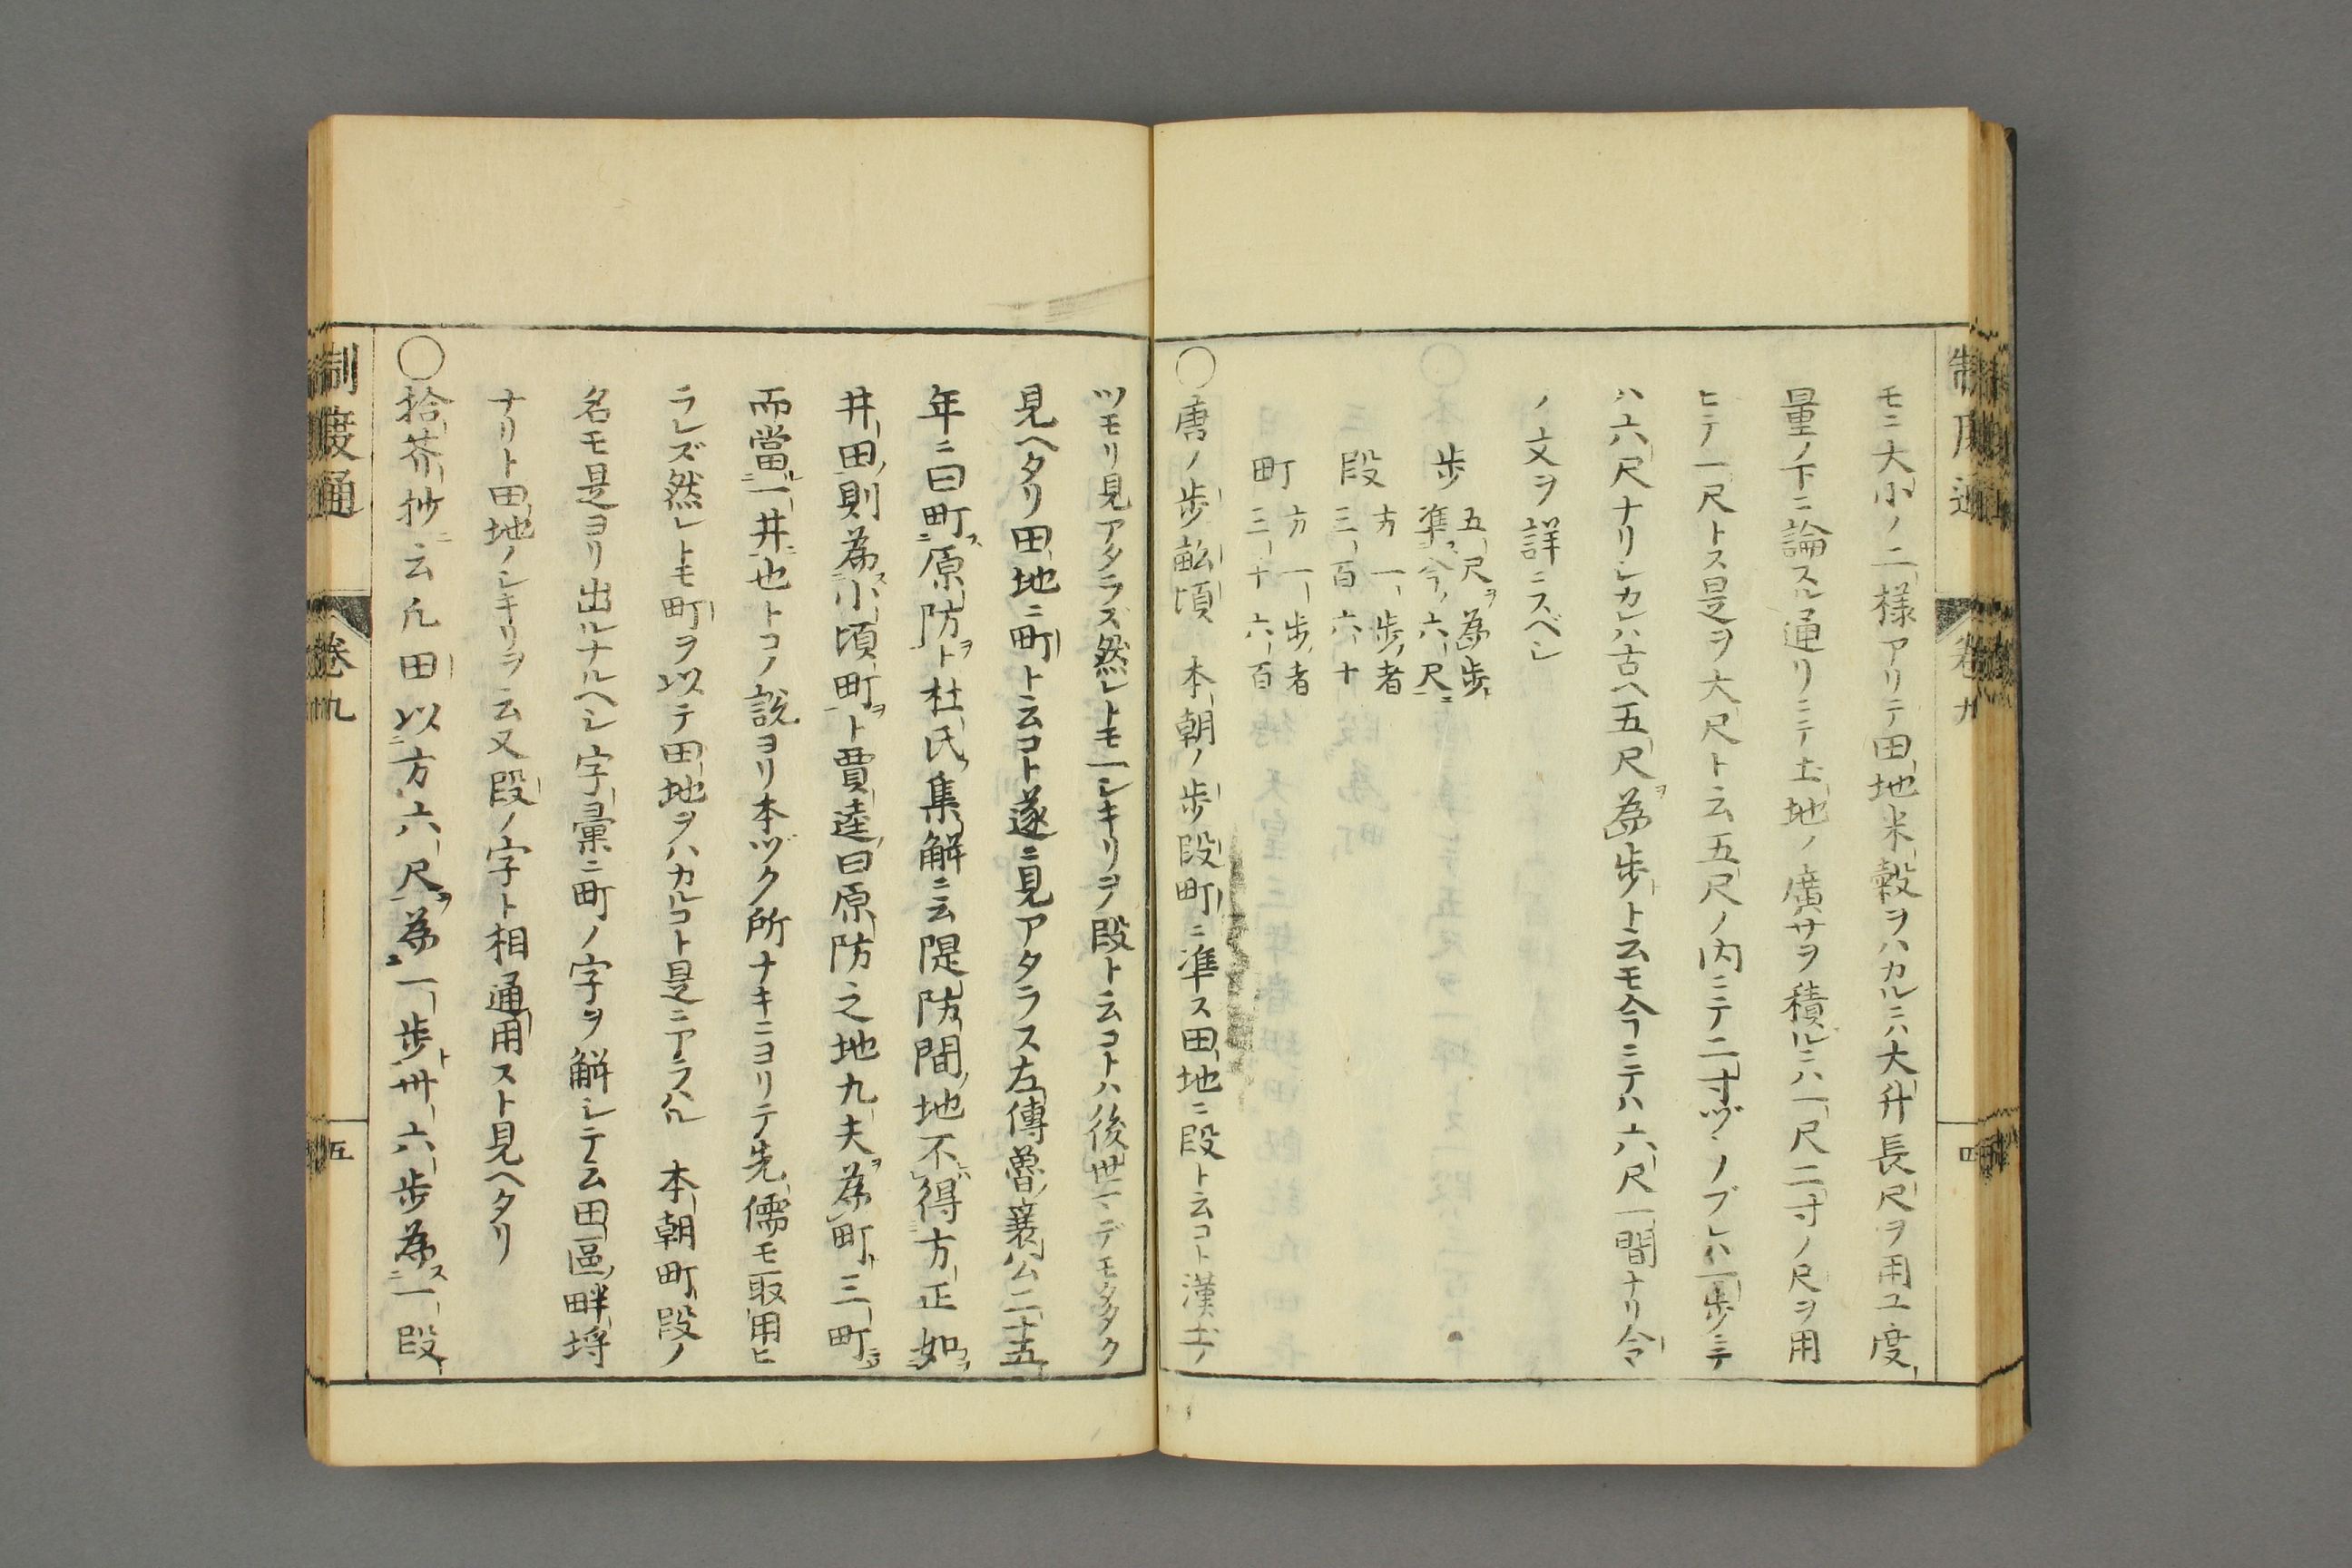 モニ大小ノ二様アリテ田地米穀ヲハカルニハ大升長尺ヲ用ユ度
量ノ下ニ論スル通リニテ土地ノ廣サヲ積ルニハ一尺二寸ノ尺ヲ用
ヒテ一尺トス是ヲ大尺ト云五尺ノ内ニテ二寸ヅヽノブレハ一歩ニテ
ハ六尺ナリシカレハ古ヘ五尺為歩ト云モ今ニテハ六尺一間ナリ令
ノ文ヲ詳ニスベシ
歩 五尺ヲ為歩
準今ノ六尺ニ
段 方一歩者
三百六十
町 方一歩者
三千六百
〇唐ノ歩畝頃 本朝ノ歩段町ニ準ス田地ニ段ト云コト漢土ノ
制度通 卷九 四
ツモリ見アタラズ然レトモ一シキリヲ段ト云コトハ後世マデモ多ク
見ヘタリ田地ニ町ト云コト遂ニ見アタラス左傳魯襄公二十五
年ニ曰町原防ヲト杜氏集解ニ云隄防間地不得方正如
井田則為小頃町ヲト賈逵曰原防之地九夫為町三町
而當一井也トコノ説ヨリ本ヅク所ナキニヨリテ先儒モ取用ヒ
ラレズ然レトモ町ヲ以テ田地ヲハカルコト是ニアラハル 本朝町段ノ
名モ是ヨリ出ルナルヘシ字彙ニ町ノ字ヲ解シテ云田區畔埒
ナリト田地ノシキリヲ云又段ノ字ト相通用スト見ヘタリ
〇拾芥抄ニ云凡田以方六尺為一歩卅六歩為一段
制度通 卷九 五